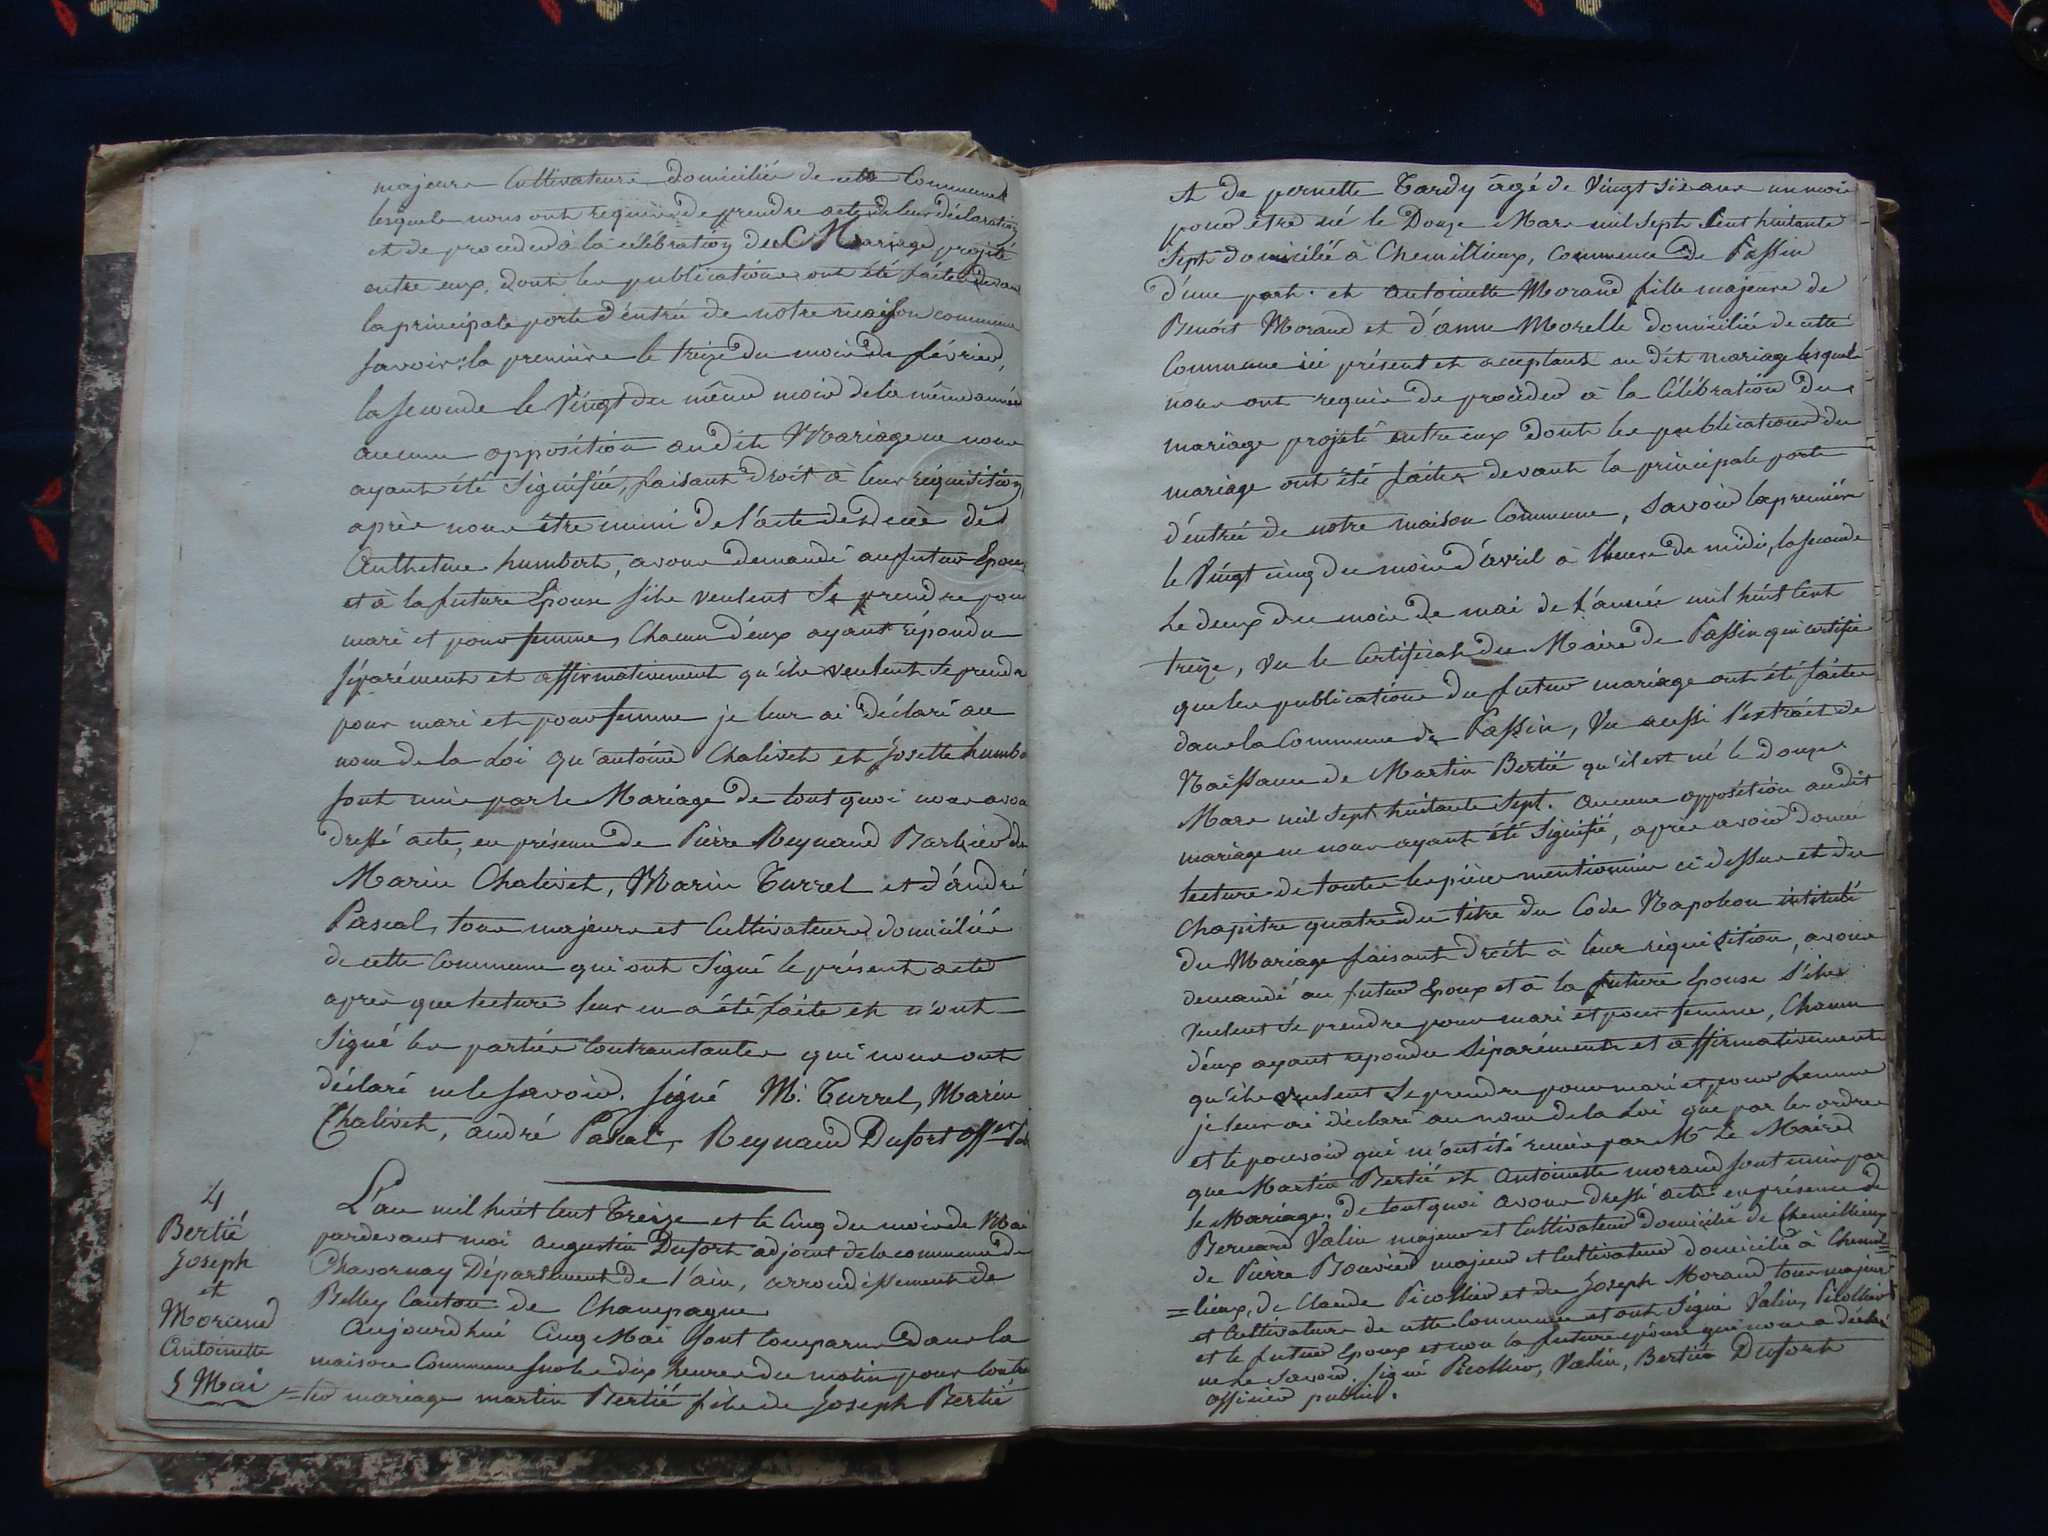 majeurs Cultivateurs domiciliés de cette Commune
lesquels nous ont requis de prendre acte de leur déclaration
et de proceder à la célébration du Mariage projeté
entre eux, dont les publications ont été faites devant
la principale porte d'éntrée de notre maison commune
savoir: la première le treize du mois de février,
la seconde le Vingt du même mois de la même année
aucune opposition audit Mariage ne nous
ayant été Signifiée, faisant droit à leur réquisition
après nous être muni de l'acte de décès de
Anthelme humbert, avons demandé au futur Epoux
et à la future Epouse s'ils veulent Se prendre pour
mari et pour femme, Chacun d'eux ayant répondu
séparément et affirmativement qu'ils veulent Se prendre
pour mari et pour femme je leur ai déclaré au
nom de la Loi qu'antoine Chalivet et Josette humb
sont unis par le Mariage de tout quoi nous avons
dressé acte, en présence de Pierre Reynaud Barbier de
Marin Chalivet, Marin Turrel et d'André
Pascal, tous majeurs et Cultivateurs domiciliés
de cette Commune qui ont Signé le présent acte
après que lecture leur en a été faite et n'ont
Signé les parties Contractantes qui nous ont
déclaré ne le savoir. Signé M. Turrel, Marin
Chalivet, andré Pascal, Reynaud Dufort offer
4
Bertié
Joseph
et
Morand
Antoinette
5 Mai
L'an mil huit Cent Treize et le Cinq du mois de Mai
pardevant moi augustin Dufort adjoint de la commune de
Chavornay Département de l'ain, arrondissement de
Belley Canton de Champagne
Aujourdhui Cinq Mai sont Comparus dans la
maison Commune sur les dix heures du matin pour Contrac
=ter mariage martin Bertié fils de Joseph Bertié
et de pernette Tardy âgé de Vingt Six ans un mois
pour être né le Douze Mars mil Sept Cent huitante
Sept domicilié à Chemillieux, Commune de Passin
d'une part. et Antoinette Morand fille majeure de
Benoit Morand et d'anne Morelle domiciliés de cette
Commune ici présent et acceptant au dit mariage lesquels
nous ont requis de procéder à la Célébration du
mariage projeté entre eux dont les publications du
mariage ont été faites devant la principale porte
d'éntrée de notre maison Commune, Savoir la première
le Vingt cinq du mois d'avril à l'heure de midi, la seconde
Le deux du mois de mai de l'année mil huit Cent
treize, Vu le Certificat du Maire de Passin qui certifie
que les publications du futur mariage ont été faites
dans la Commune de Passin, Vu aussi l'extrait de
Naissance de Martin Bertié qu'il est né le douze
Mars mil Sept huitante Sept. aucune opposition audit
mariage ne nous ayant été Signifié, après avoir donné
lecture de toutes les pièces mentionnées ci dessus et du
Chapitre quatre du titre du Code Napoléon intitulé
du Mariage faisant droit à leur réquisition, avons
demandé au futur Epoux et à la future Epouse S'ils
Veulent Se prendre pour mari et pour femme, Chacun
d'eux ayant repondu Séparément et affirmativement
qu'ils veulent Se prendre pour mari et pour femme
je leur ai déclaré au nom de la Loi que par les ordres
et le pouvoir qui m'ont été remis par Mr Le Maire
que Martin Bertié et Antoinette morand sont unis par
le Mariage. De tout quoi avons dressé acte en présence de
Bernard Valin majeur et Cultivateur domicilié de Chemillieux
de Pierre Bouvier majeur et Cultivateur domicilié à Chemil=
=lieux, de Claude Picollier et de Joseph Morand tous majeurs
et Cultivateurs de cette Commune et ont Signé Valin, Picollier
et le futur Epoux et non la future épouse qui nous a déclaré
ne Le Savoir. Signé Picollier, Valin, Bertié Dufort
officier public.